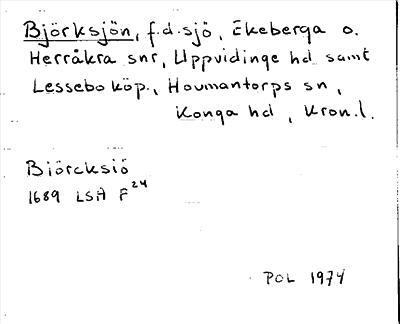 Björksjön, f.d. sjö, Ekeberga o.
Herråkra snr, Uppvidinge hd samt
Lessebo köp., Hovmantorps sn,
Konga hd, Kron.l.
Biörcksiö
1689 LSA F24
POL 1974